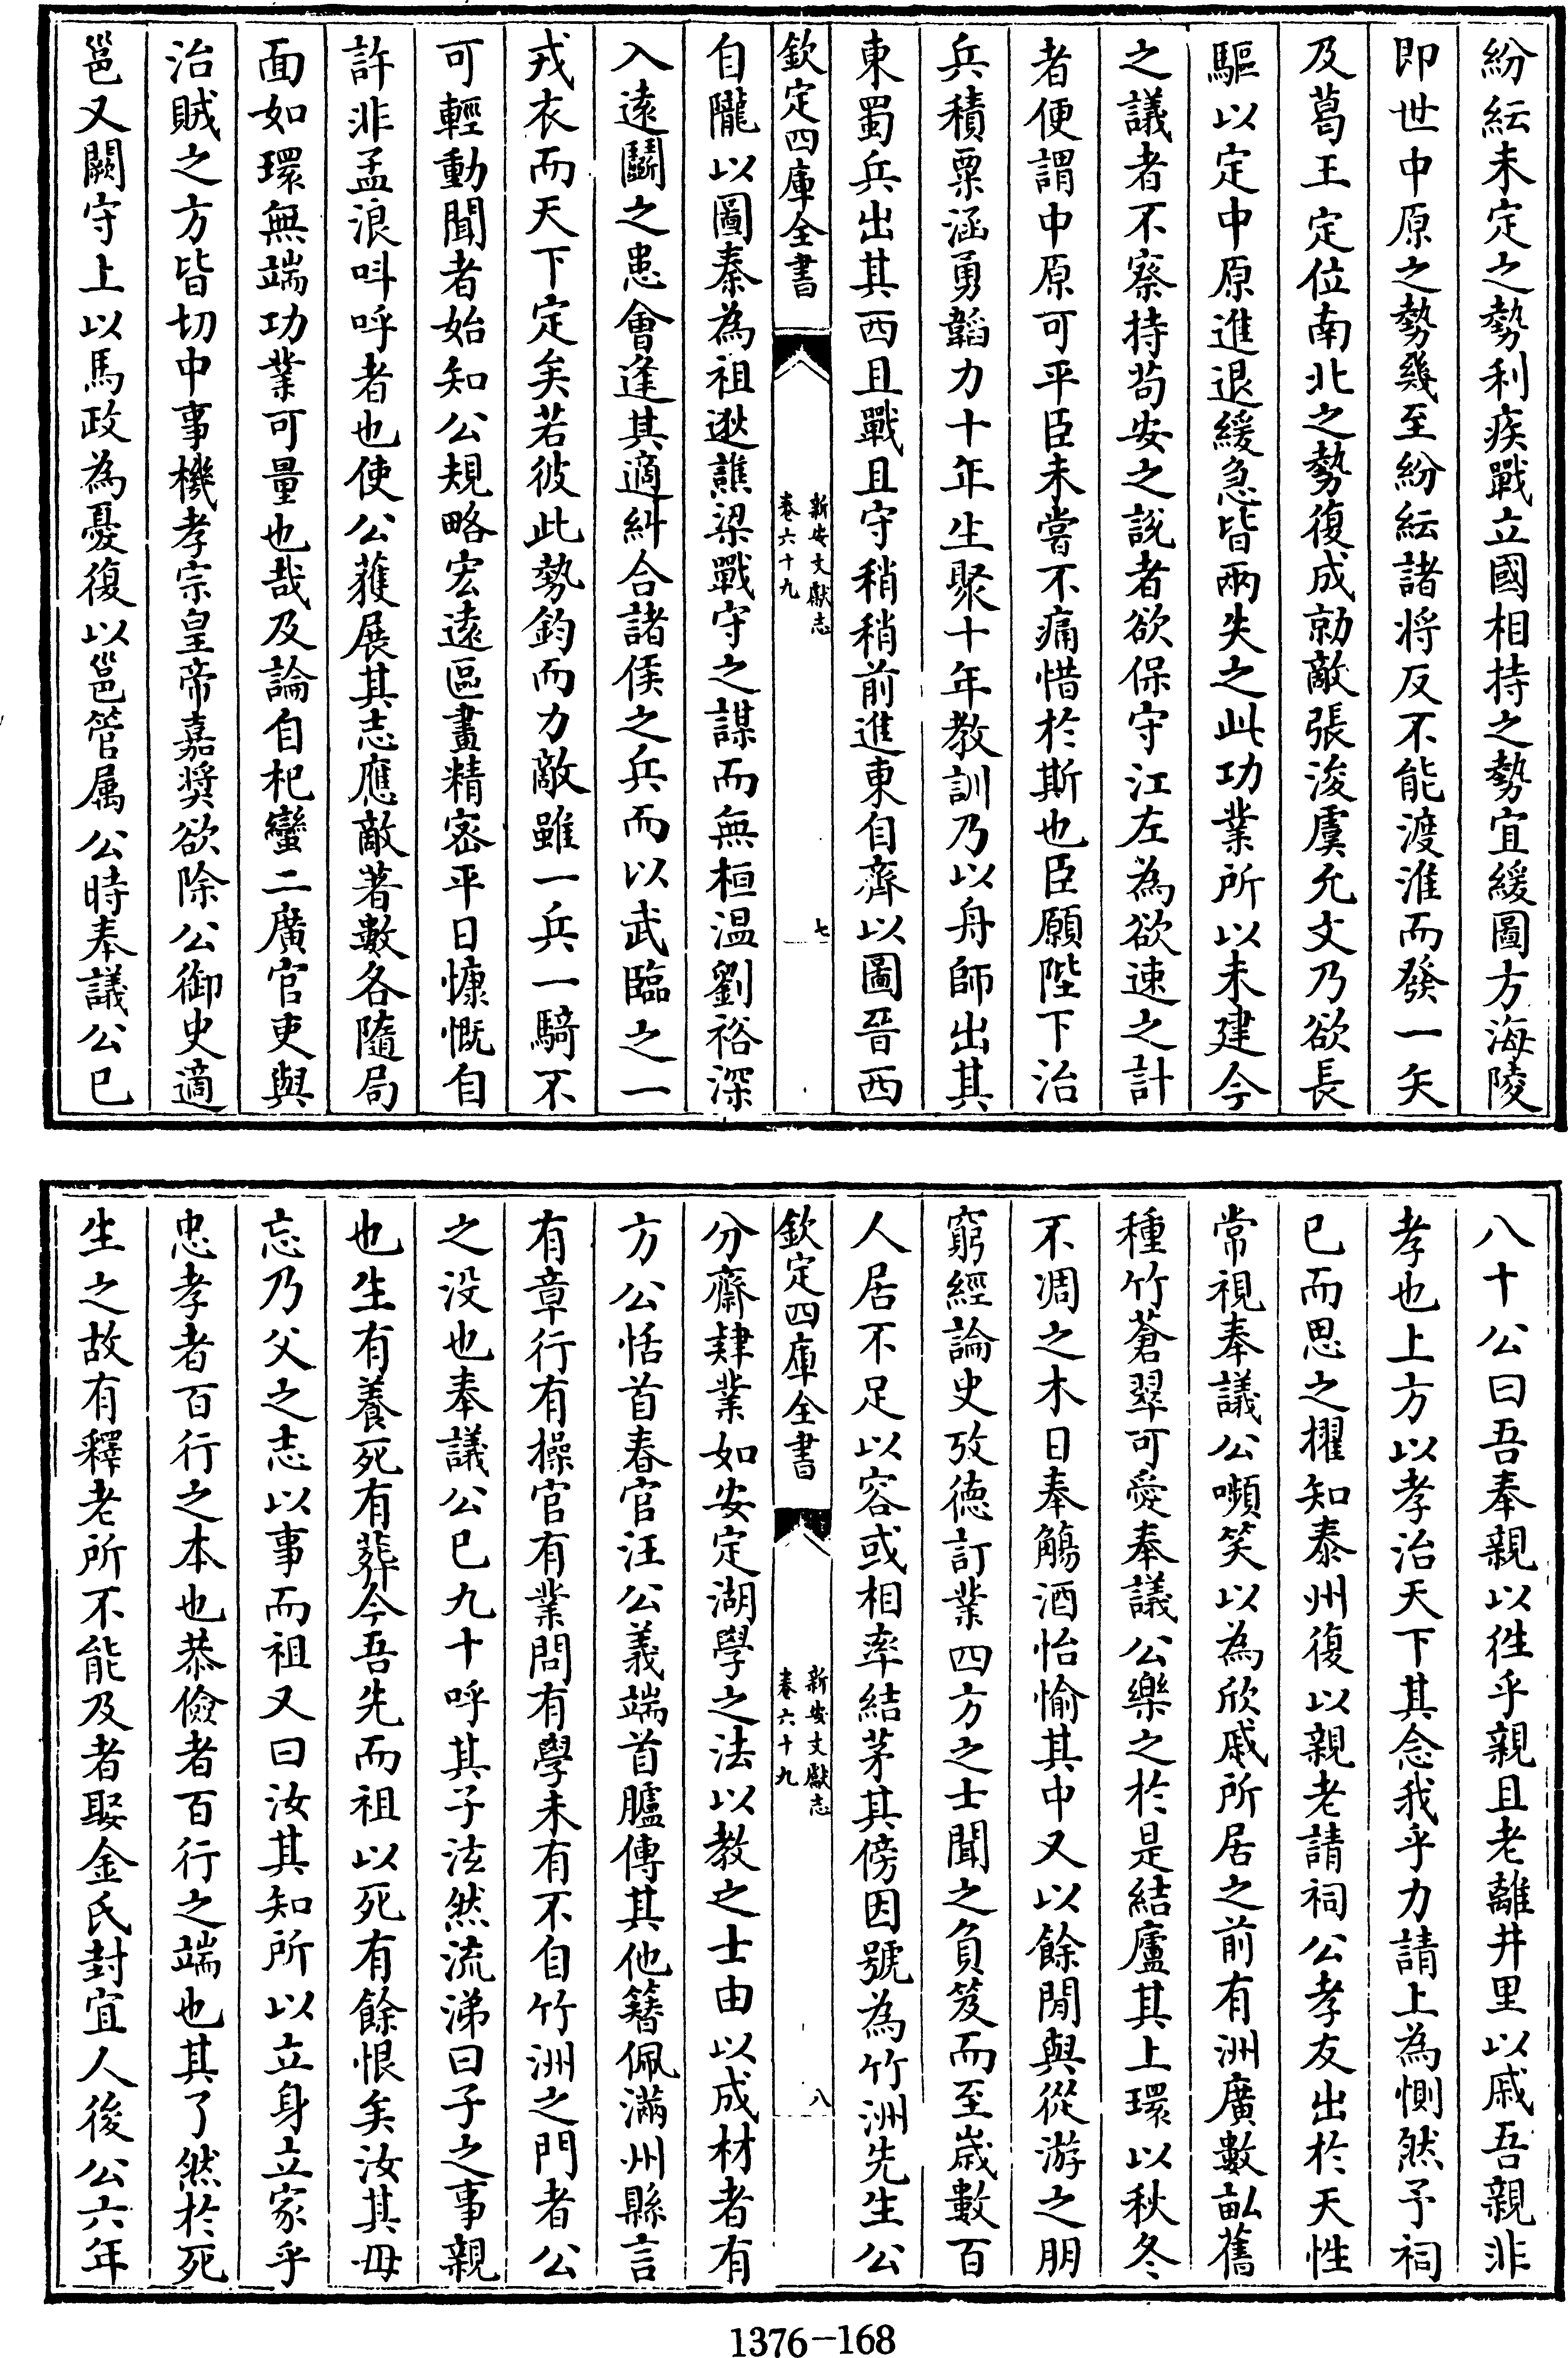 紛紜未定之勢利疾戰立國相持之勢宜緩圖方海陵
即世中原之勢幾至紛紜諸将反不能渡淮而發一矢
及葛王定位南北之勢復成勍敵張浚虞允文乃欲長
驅以定中原進退緩急皆兩失之此功業所以未建今
之議者不察持茍安之説者欲保守江左為欲速之計
者便謂中原可平臣未嘗不痛惜於斯也臣願陛下治
兵積粟涵勇韜力十年生聚十年教訓乃以舟師出其
東蜀兵出其西且戰且守稍稍前進東自齊以圖晉西
欽定四庫全書
新安文獻志
卷六十九
七
自隴以圖秦為祖逖譙梁戰守之謀而無桓温劉裕深
入遠鬭之患會逢其適糾合諸侯之兵而以武臨之一
戎衣而天下定矣若彼此勢鈞而力敵雖一兵一騎不
可輕動聞者始知公規略宏遠區畫精密平日慷慨自
許非孟浪呌呼者也使公獲展其志應敵著數各隨局
面如環無端功業可量也哉及論自杞蠻二廣官吏與
治賊之方皆切中事機孝宗皇帝嘉奨欲除公御史適
邕又闕守上以馬政為憂復以邕管属公時奉議公已
八十公曰吾奉親以徃乎親且老離井里以戚吾親非
孝也上方以孝治天下其念我乎力請上為惻然予祠
已而思之擢知泰州復以親老請祠公孝友出於天性
常視奉議公嚬笑以為欣戚所居之前有洲廣數畝舊
種竹蒼翠可愛奉議公樂之於是結廬其上環以秋冬
不凋之木日奉觴酒怡愉其中又以餘閒與從游之朋
窮經論史攷徳訂業四方之士聞之負笈而至嵗數百
人居不足以容或相率結茅其傍因號為竹洲先生公
欽定四庫全書
新安文獻志
卷六十九
八
分齋肄業如安定湖學之法以教之士由以成材者有
方公恬首春官汪公義端首臚傳其他簪佩滿州縣言
有章行有操官有業問有學未有不自竹洲之門者公
之没也奉議公已九十呼其子泫然流涕曰子之事親
也生有養死有葬今吾先而祖以死有餘恨矣汝其毋
忘乃父之志以事而祖又曰汝其知所以立身立家乎
忠孝者百行之本也恭儉者百行之端也其了然於死
生之故有釋老所不能及者娶金氏封宜人後公六年
1376-168